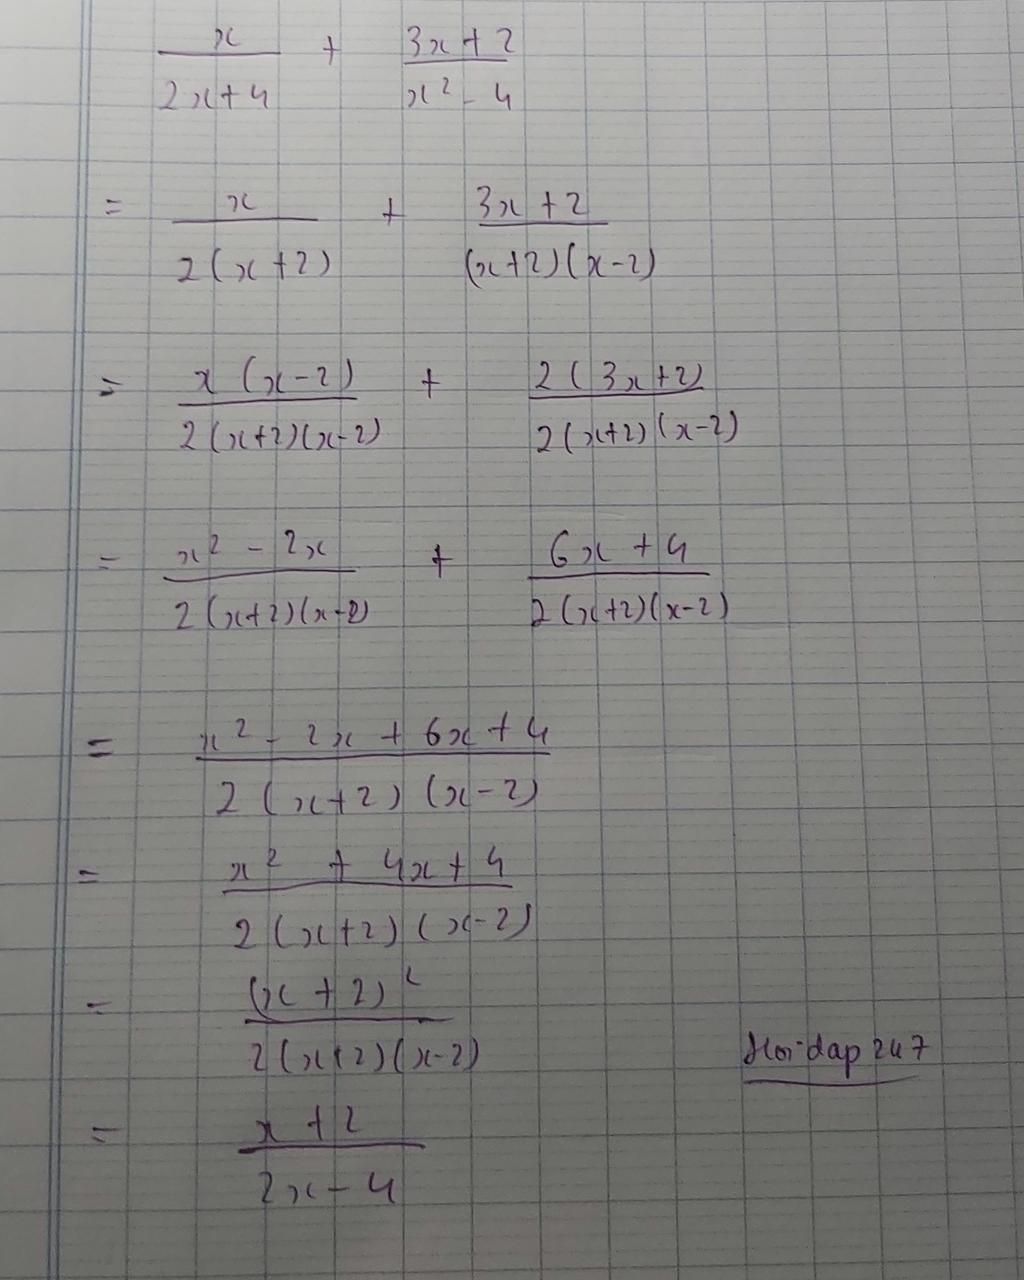 x/(2x+4) + (3x+2)/(x²-4)
= x/(2(x+2)) + (3x+2)/((x+2)(x-2))
= x(x-2)/(2(x+2)(x-2)) + 2(3x+2)/(2(x+2)(x-2))
= (x²-2x)/(2(x+2)(x-2)) + (6x+4)/(2(x+2)(x-2))
= (x²-2x+6x+4)/(2(x+2)(x-2))
= (x²+4x+4)/(2(x+2)(x-2))
= (x+2)²/(2(x+2)(x-2))
Hoi dap 247
= (x+2)/(2x-4)